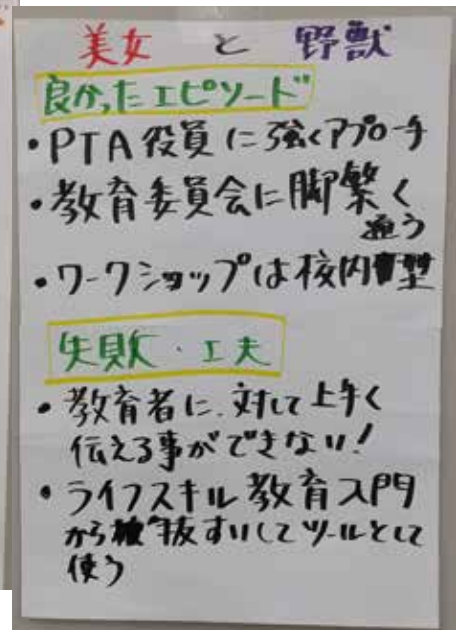 美女 と 野獣
良かったエピソード
・PTA役員に強くアプローチ
・教育委員会に脚繁く
通う
・ワークショップは校内型
失敗・工夫
・教育者に.対して上手く
伝える事ができない!
・ライフスキル教育入門
から抜すいしてツールとして
使う